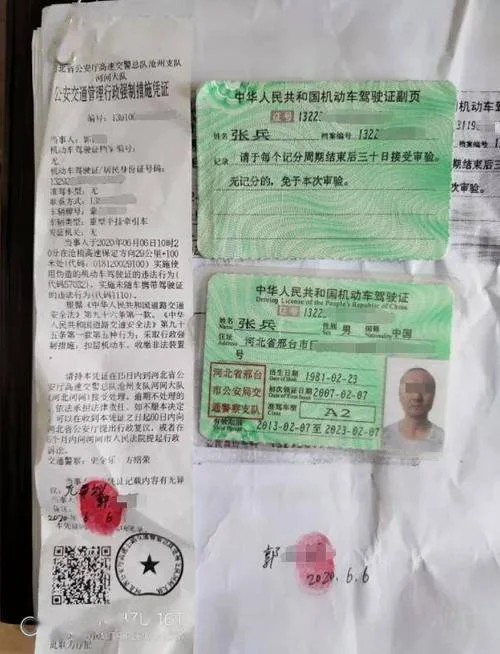 河北省公安厅高速交警总队沧州支队
河间大队
公安交通管理行政强制措施凭证
编号：13
当事人：郭
机动车驾驶证档案编号：
无
机动车驾驶证/居民身份证号码：
准驾车型：无
联系方式：
车辆牌号：蒙
车辆类型：重型半挂牵引车
发证机关：无
当事人于2020年06月06日10时2
0分在沧榆高速保定方向29公里+100
米处(代码：018120029100)实施使
用伪造的机动车驾驶证的违法行为(
代码57032)，实施未随车携带驾驶证
的违法行为(代码1110)。
根据《中华人民共和国道路交通
安全法》第九十六条第一款，《中华
人民共和国道路交通安全法》第九十
五条第一款第五种行为；采取行政强
制措施：扣留机动车、收缴非法装置
请持本凭证在15日内到河北省公
安厅高速交警总队沧州支队河间大队
(河北河间)接受处理。逾期不处理的
，依法承担法律责任。如不服本决定
，可以在收到本凭证之日起60日内向
河北省公安厅提出行政复议，或者在
6个月内向河间市人民法院提起行政
诉讼。
交通警察：史全乐 方绍荣
当事人
无异议
郭
2020 6.6
中华人民共和国机动车驾驶证副页
证号 1322
姓名 张兵 档案编号 1322
记录 请于每个记分周期结束后三十日接受审验。
无记分的，免予本次审验。
中华人民共和国机动车驾驶证
Driving License of the People's Republic of China
证号 1322
姓名 张兵 性别 男 国籍 中国
住址 河北省邢台市
号
河北省邢台
市公安局交
通警察支队
出生日期 1981-02-23
初次领证日期 2007-02-07
准驾车型 A2
有效期限 2013-02-07 至 2023-02-07
郭
2020.6.6